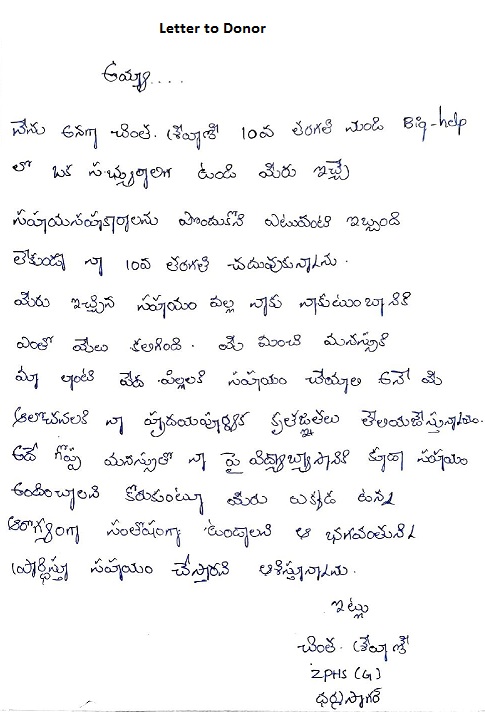 Letter to Donor
అయ్యా....
నేను అనగా చింత. శ్రేష్ఠాశ్రీ 10వ తరగతి నుండి Big-help
లో ఒక సభ్యురాలిగా ఉండి మీరు ఇచ్చే
సహాయసహకారాలను పొందుకొని ఎటువంటి ఇబ్బంది
లేకుండా నా 10వ తరగతి చదువుకున్నాను.
మీరు ఇచ్చిన సహాయం వల్ల నాకు నాకుటుంబానికి
ఎంతో మేలు కలిగింది. మీ మంచి మనస్సుకి
మా లాంటి పేద పిల్లలకి సహాయం చేయాలి అనే మీ
ఆలోచనలకి నా హృదయపూర్వక కృతజ్ఞతలు తెలియజేస్తున్నాను.
అదే గొప్ప మనస్సుతో నా పై విద్యాభ్యాసానికి కూడా సహాయం
అందించాలని కోరుకుంటూ మీరు ఎక్కడ ఉన్నా
ఆరోగ్యంగా సంతోషంగా ఉండాలని ఆ భగవంతుని
ప్రార్థిస్తూ సహాయం చేస్తారని ఆశిస్తున్నాను.
ఇట్లు
చింత.
ZPHS (G)
ధర్మసాగర్